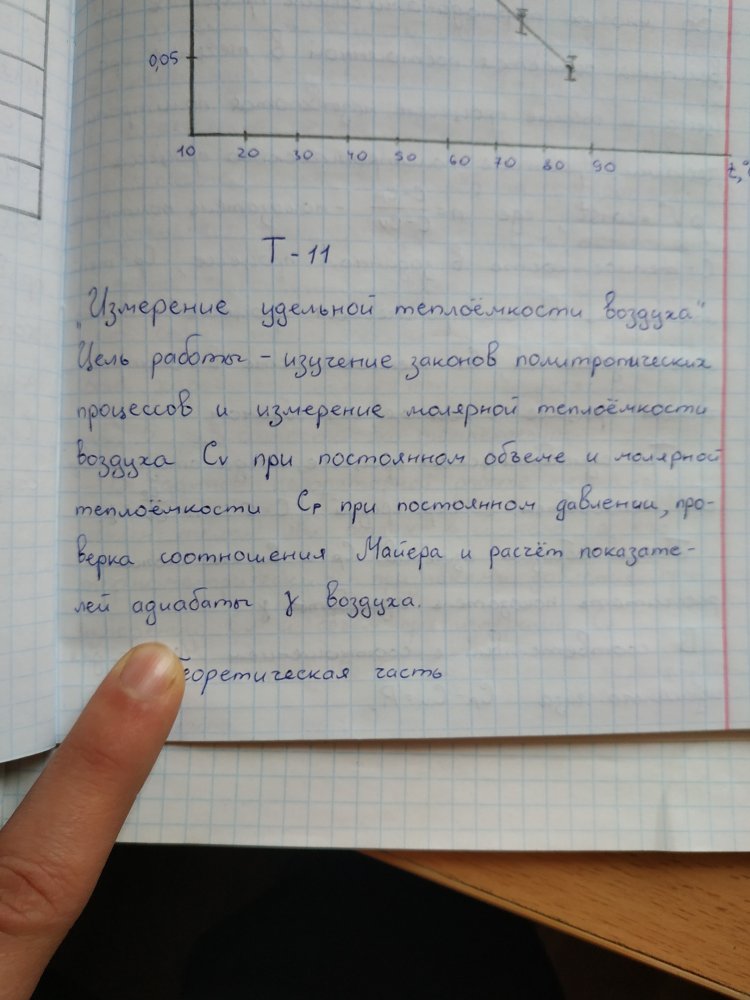 0,05
10 20 30 40 50 60 70 80 90 t,°
Т-11
"Измерение удельной теплоёмкости воздуха"
Цель работы - изучение законов политропических
процессов и измерение молярной теплоёмкости
воздуха Cv при постоянном объеме и молярной
теплоёмкости Cp при постоянном давлении, про-
верка соотношения Майера и расчёт показате-
лей адиабаты γ воздуха.
еоретическая часть